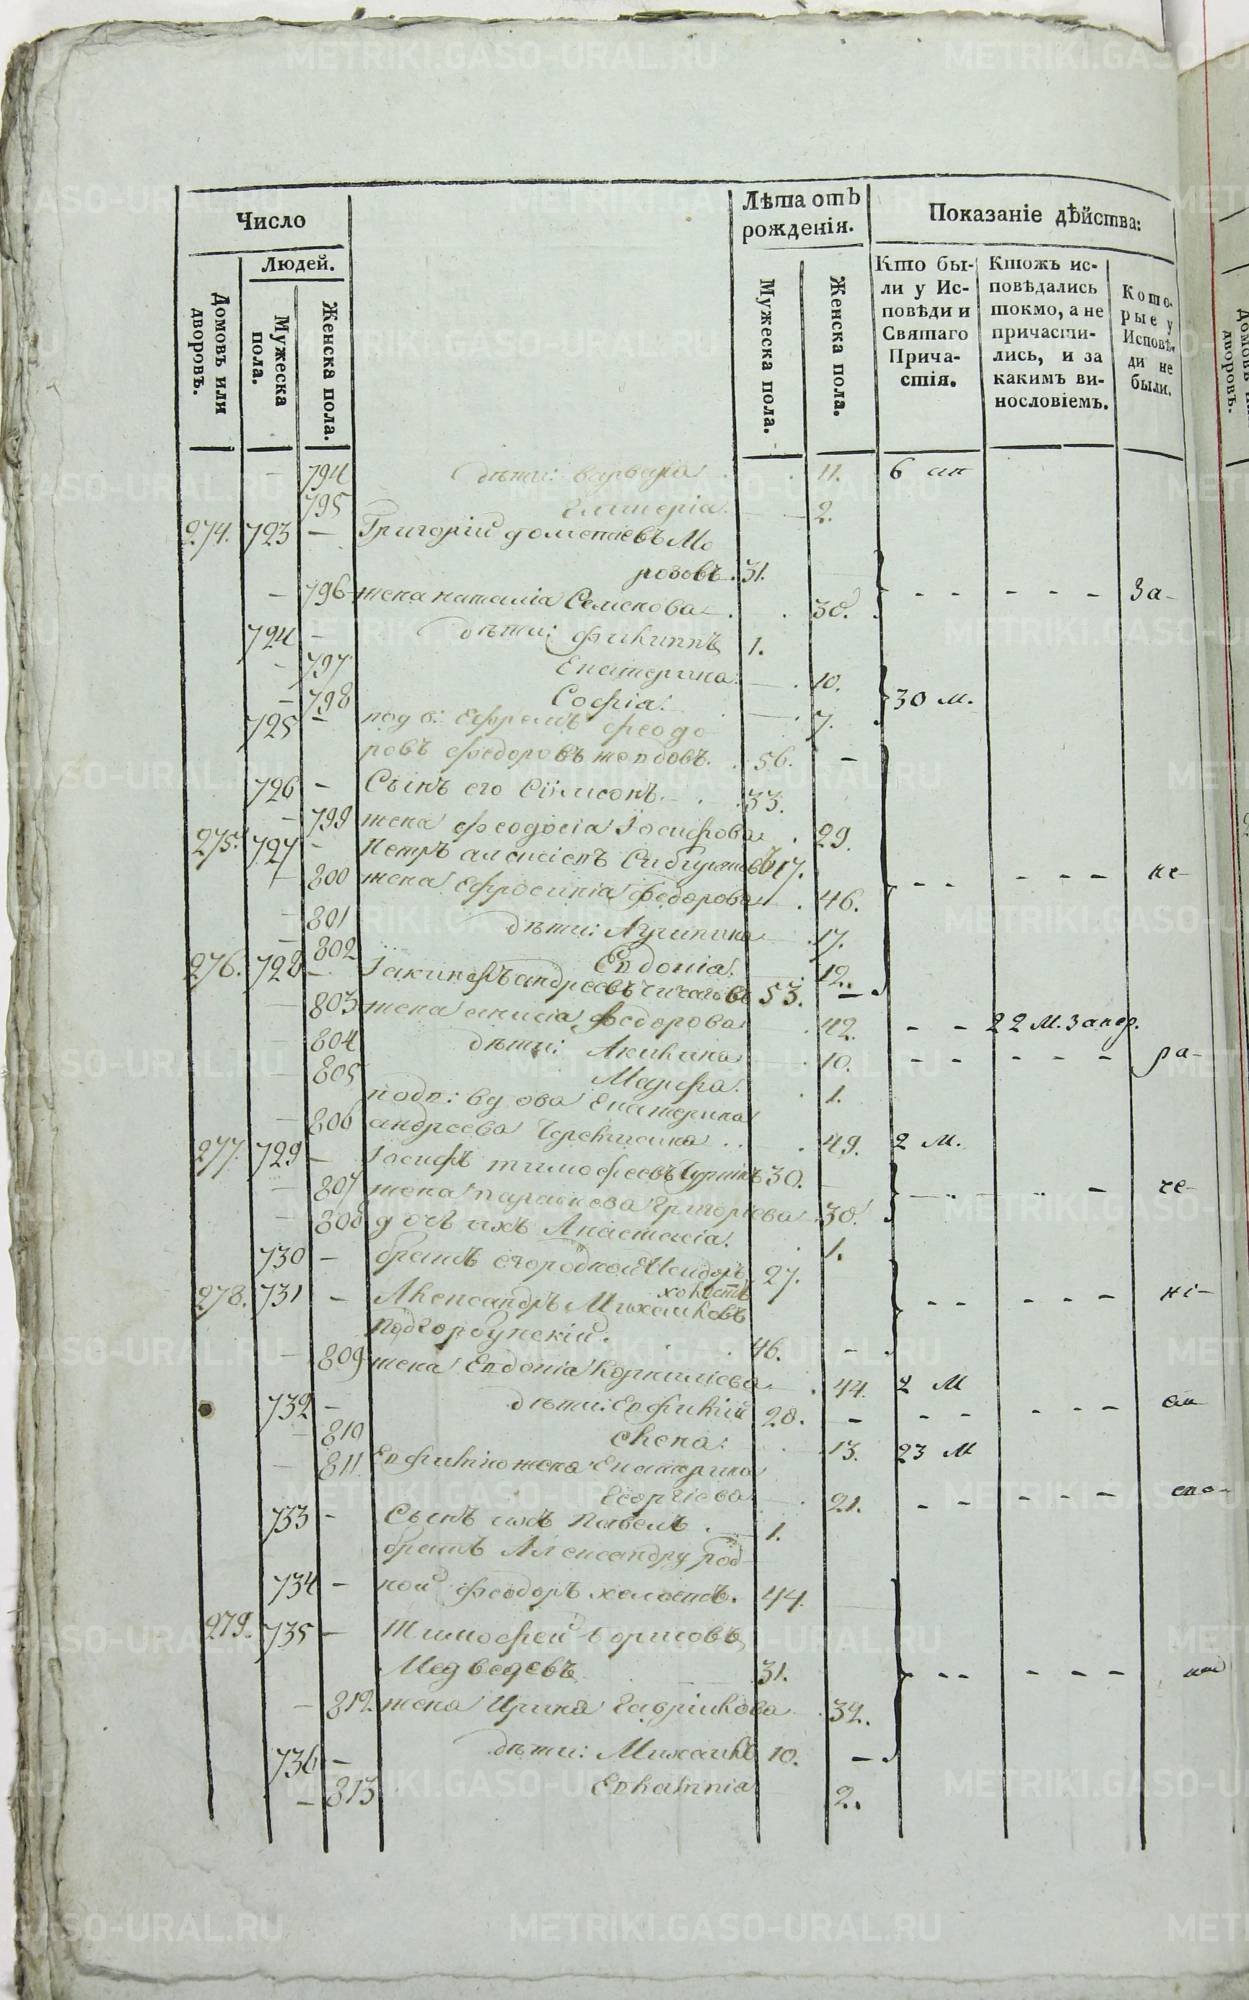 Число
Лѣта отъ рожденія.
Показаніе дѣйства:
Людей.
Домовъ или дворовъ.
Мужеска пола.
Женска пола.
Мужеска пола.
Женска пола.
Кто были у Исповѣди и Святаго Причастія.
Ктожъ исповѣдались токмо, а не причастились, и за какимъ винословіемъ.
Которые у Исповѣди не были.
– 794 дѣти: варвара . . 11. 6 ап
795 . — 2.
274. 723 – Григорій домепаевъ Мо
розовъ. 31.
– 796 жена наталіа Семенова . . 30. – – – – – За-
724 – дѣти: Филиппъ 1.
– 797 Екатерина: — . 10.
– 798 Софіа: . 7. 30 м.
725 – подв: Ефремъ феодо
ровъ федоровъ . 56. –
726 – Сынъ его Сѵмеонъ . . 33.
– 799 жена феодосіа Іосифова . 29.
275. 727 – Петръ алексіевъ Сибиряковъ 47.
– 800 жена Ефросиніа Федорова . 46. – – – – – не-
– 801 дѣти: Лукина . 17.
– 802 Евдокіа. 12.
276. 728 – Іакинфъ андреевъ чигасовъ 53. –
– 803 жена анисіа федорова . 42. – – 22 М. запр.
– 804 дѣти: Акилина . 10. – – – – – ра-
– 805 Марфа: . 1.
подв: вдова Екатерина
– 806 андреева . . 49. 2 м.
277. 729 – Іосифъ тимофеевъ 30. –
– 807 жена параскева Григоріева . 30. – – – – – че-
– 808 дочь ихъ Анастасіа. . 1.
730 – братъ его родной Исидоръ 27.
холостъ
278. 731 – Александръ Михаиловъ – – – – – ні-
Подгорбунскій. . . 46. –
– 809 жена Евдокіа Корниліева . 44. 2 М
732 – дѣти: Евфилій 28. – – – – – – ем
– 810 елена: . 13. 23 М
– 811 жена Екатерина
Георгіева . 21. – – – – – спо-
733 – Сынъ ихъ Павелъ . — 1.
братъ Александру род
734 – ной феодоръ холостъ. 44.
279. 735 – Тимофей борисовъ
Медведевъ 31. – – – – –
– 812. жена Ирина Гавріилова . 32.
736 – дѣти: Михаилъ 10. –
– 813 Евлампіа 2.
METRIKI.GASO-URAL.RU